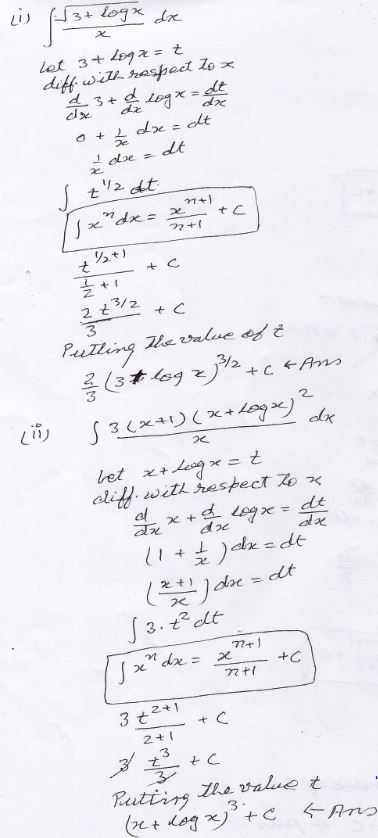 (i) ∫ √3 + log x / x dx
Let 3 + log x = t
diff. with respect to x
d/dx 3 + d/dx log x = dt/dx
0 + 1/x dx = dt
1/x dx = dt
∫ t^1/2 dt
∫ x^n dx = x^n+1 / n+1 + c
t^1/2+1 / 1/2 + 1 + c
2 t^3/2 / 3 + c
Putting the value of t
2/3 (3 + log x)^3/2 + c ← Ans
(ii) ∫ 3(x+1)(x+log x)^2 / x dx
Let x + log x = t
diff. with respect to x
d/dx x + d/dx log x = dt/dx
(1 + 1/x) dx = dt
(x+1 / x) dx = dt
∫ 3. t^2 dt
∫ x^n dx = x^n+1 / n+1 + c
3 t^2+1 / 2+1 + c
3 t^3 / 3 + c
Putting the value t
(x + log x)^3 + c ← Ans